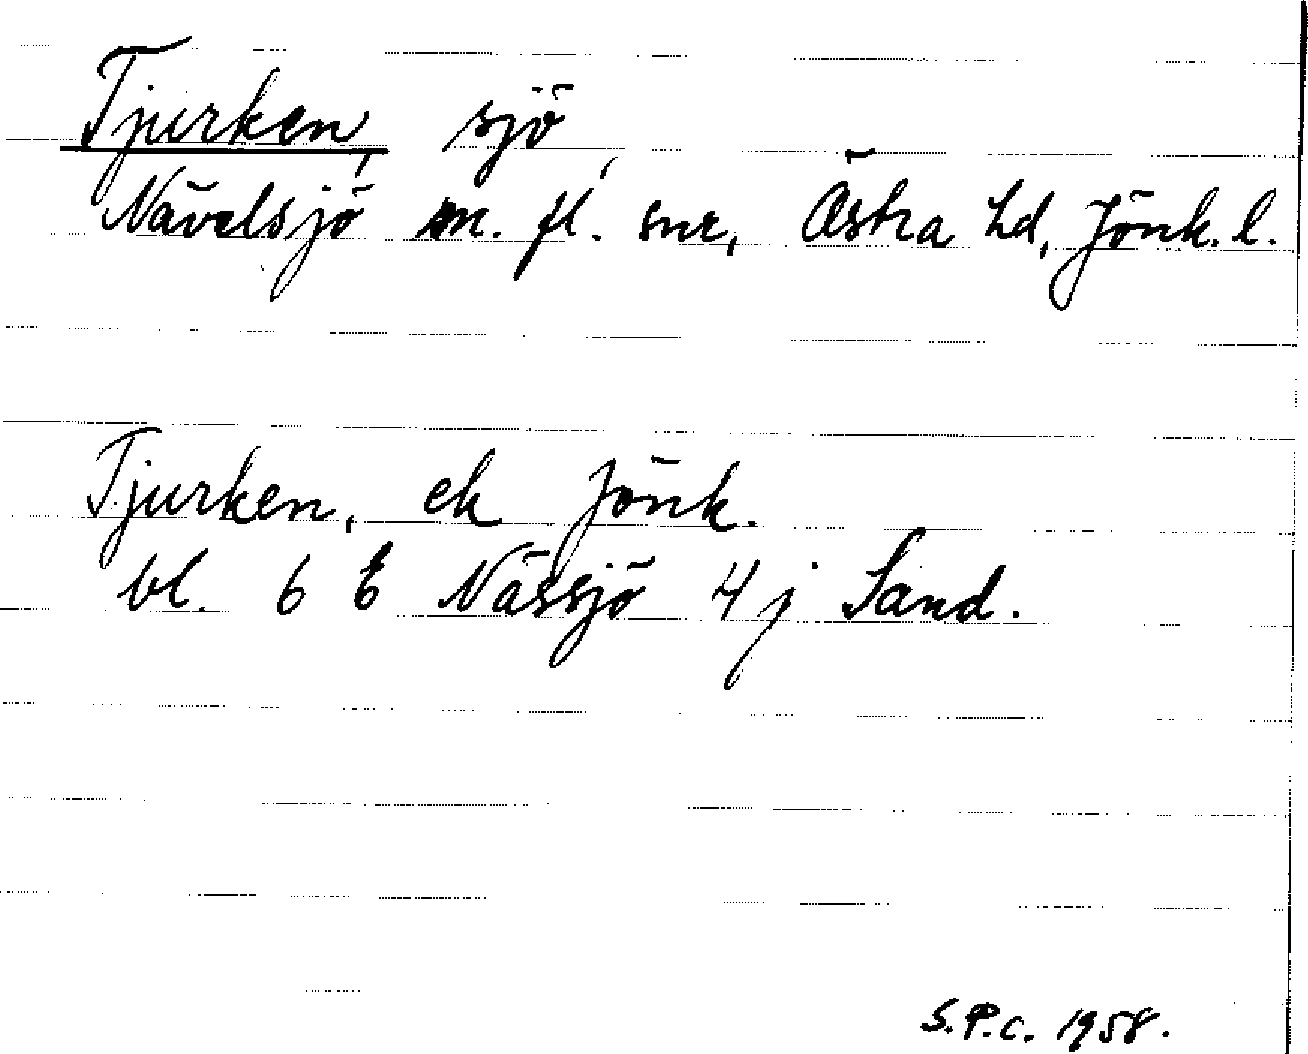 Tjurken, sjö,
Nävelsjö m. fl. snr, Östra hd, Jönk. l.
Tjurken, ek Jönk.
bl. 6 E Nässjö 4 j Sand.
S.P.C. 1958.